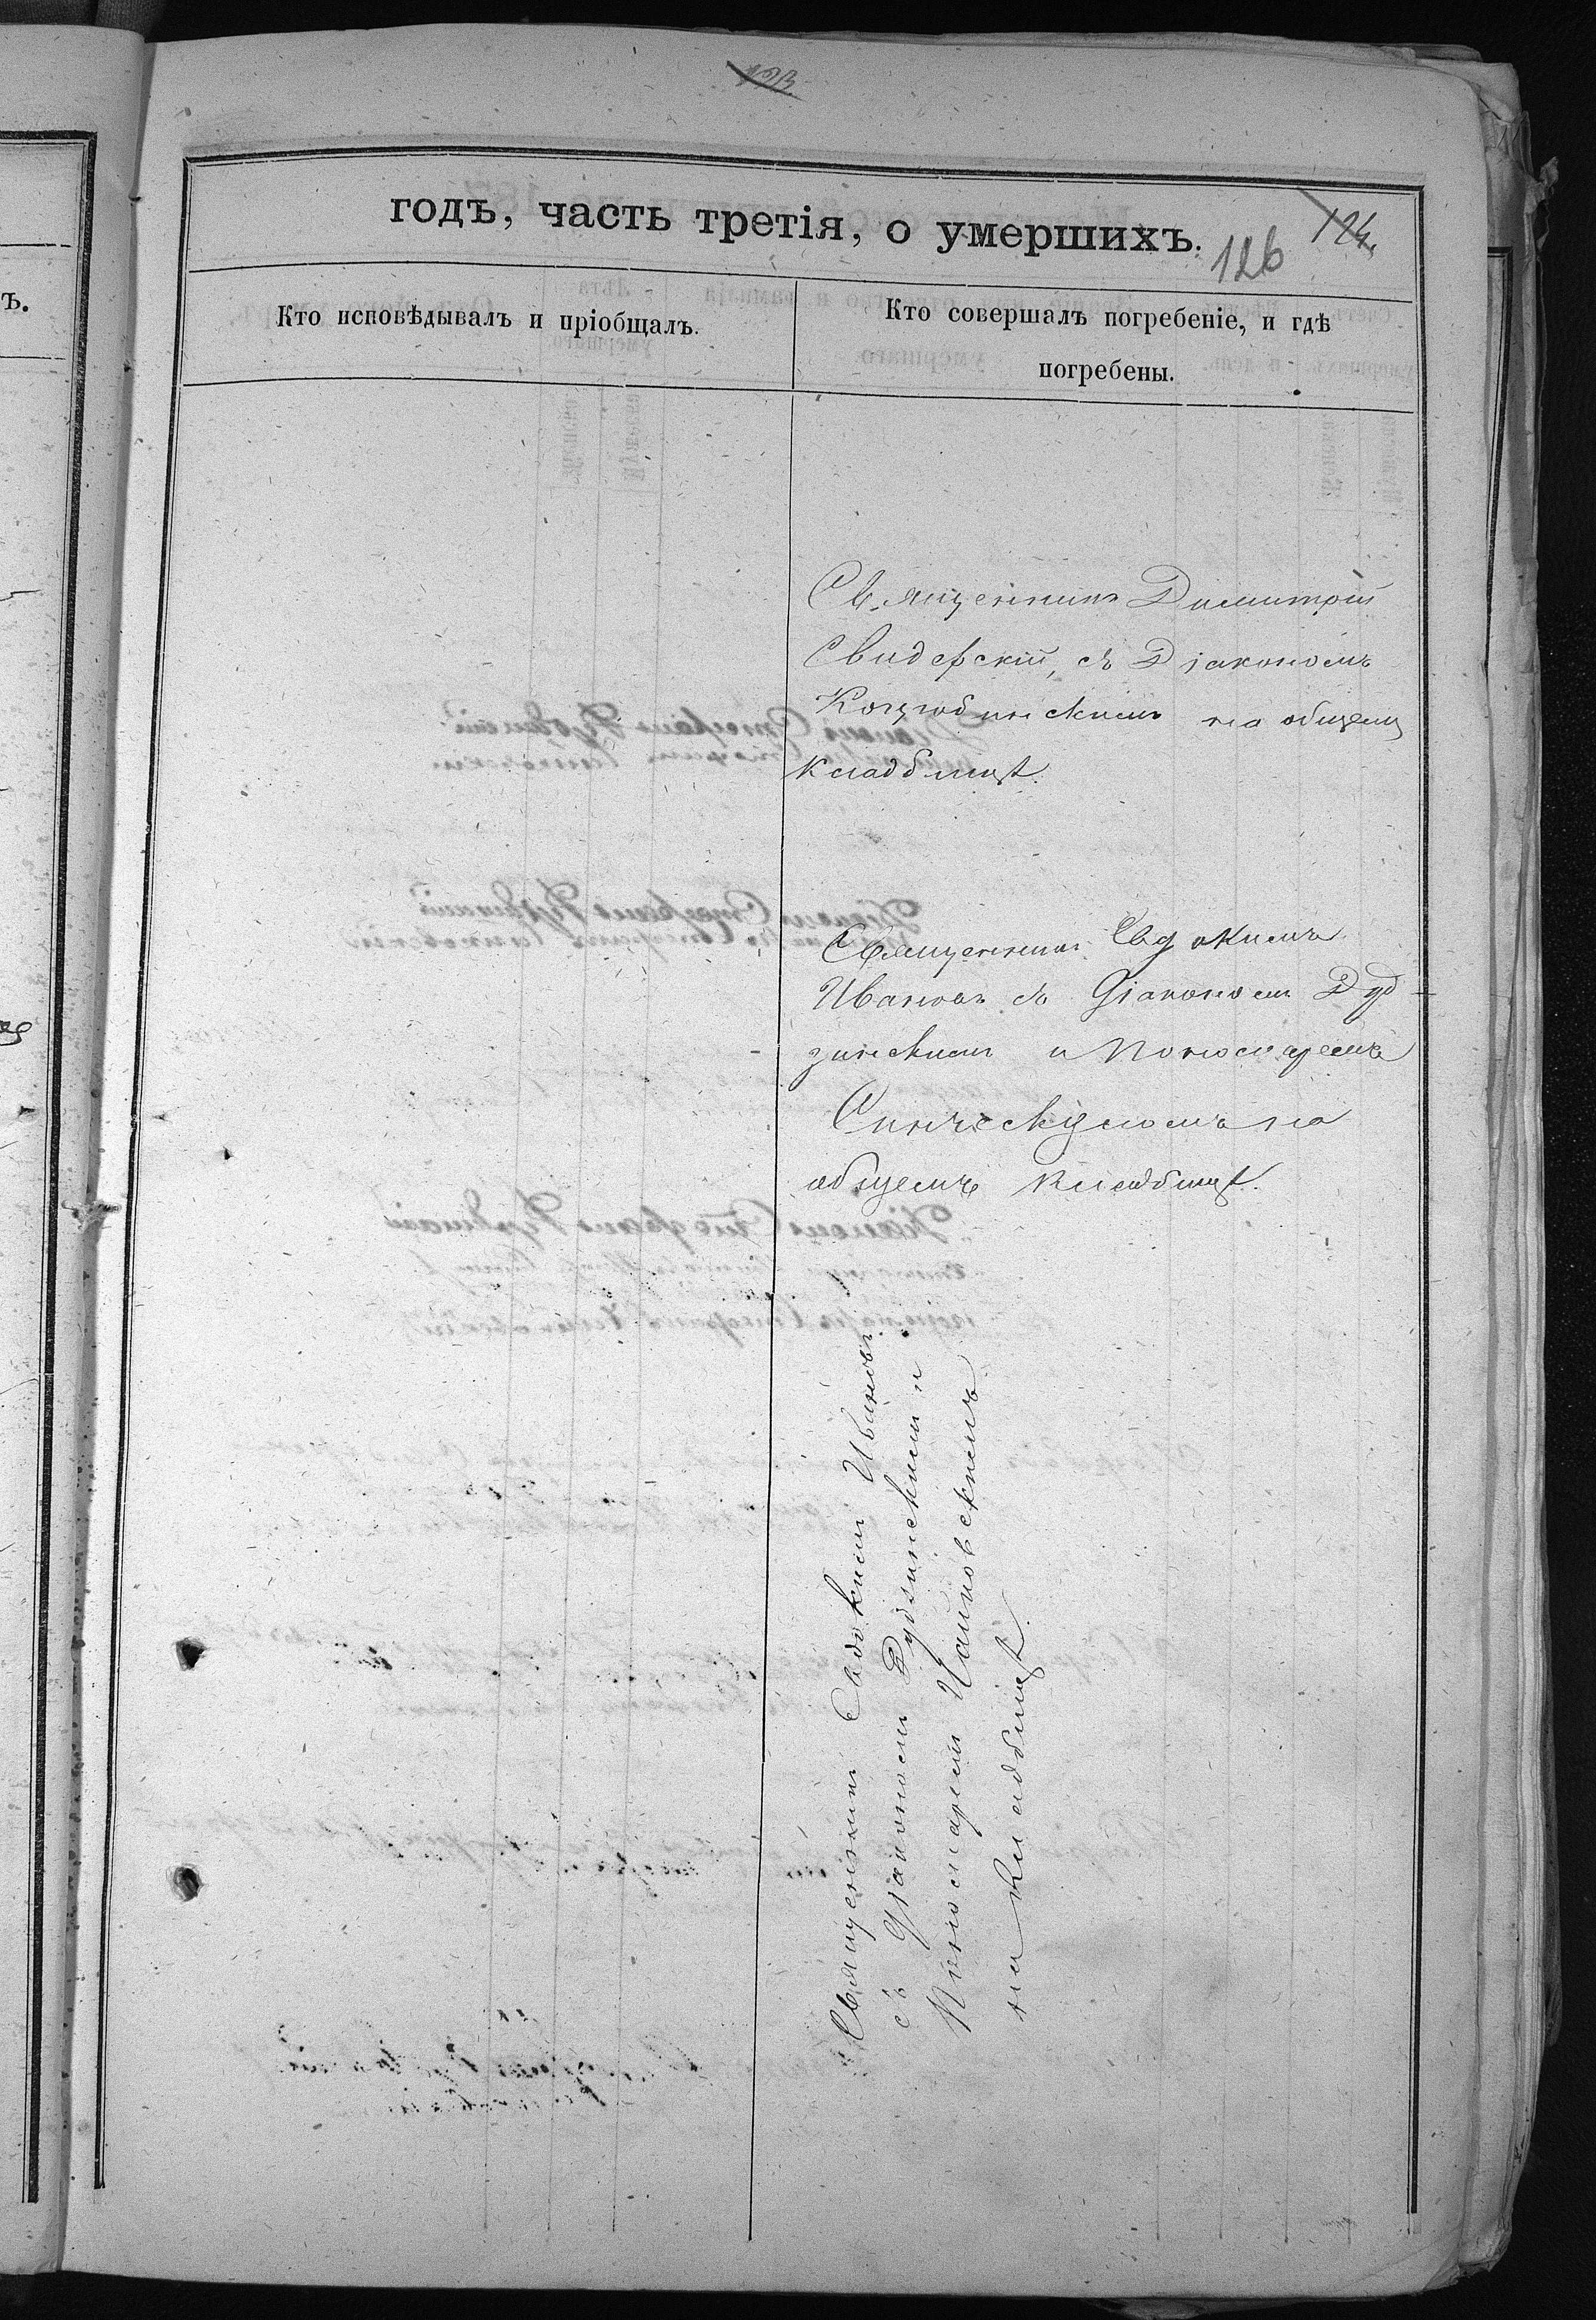 годъ, часть третія, о умершихъ.
126
124.
Кто исповѣдывалъ и пріобщалъ.
Кто совершалъ погребеніе, и гдѣ
погребены.
Священникъ Димитрій
Свидерскій, съ Діакономъ
Коцюбинскимъ на общемъ
кладбищѣ.
Священникъ Евдокимъ
Ивановъ съ Діакономъ Дуд-
зинскимъ и Пономаремъ
на
общемъ кладбищѣ.
Священникъ Евдокимъ Ивановъ
съ Діакономъ Дудзинскимъ и
Пономаремъ Чайковскимъ
на кладбищѣ.
ъ.